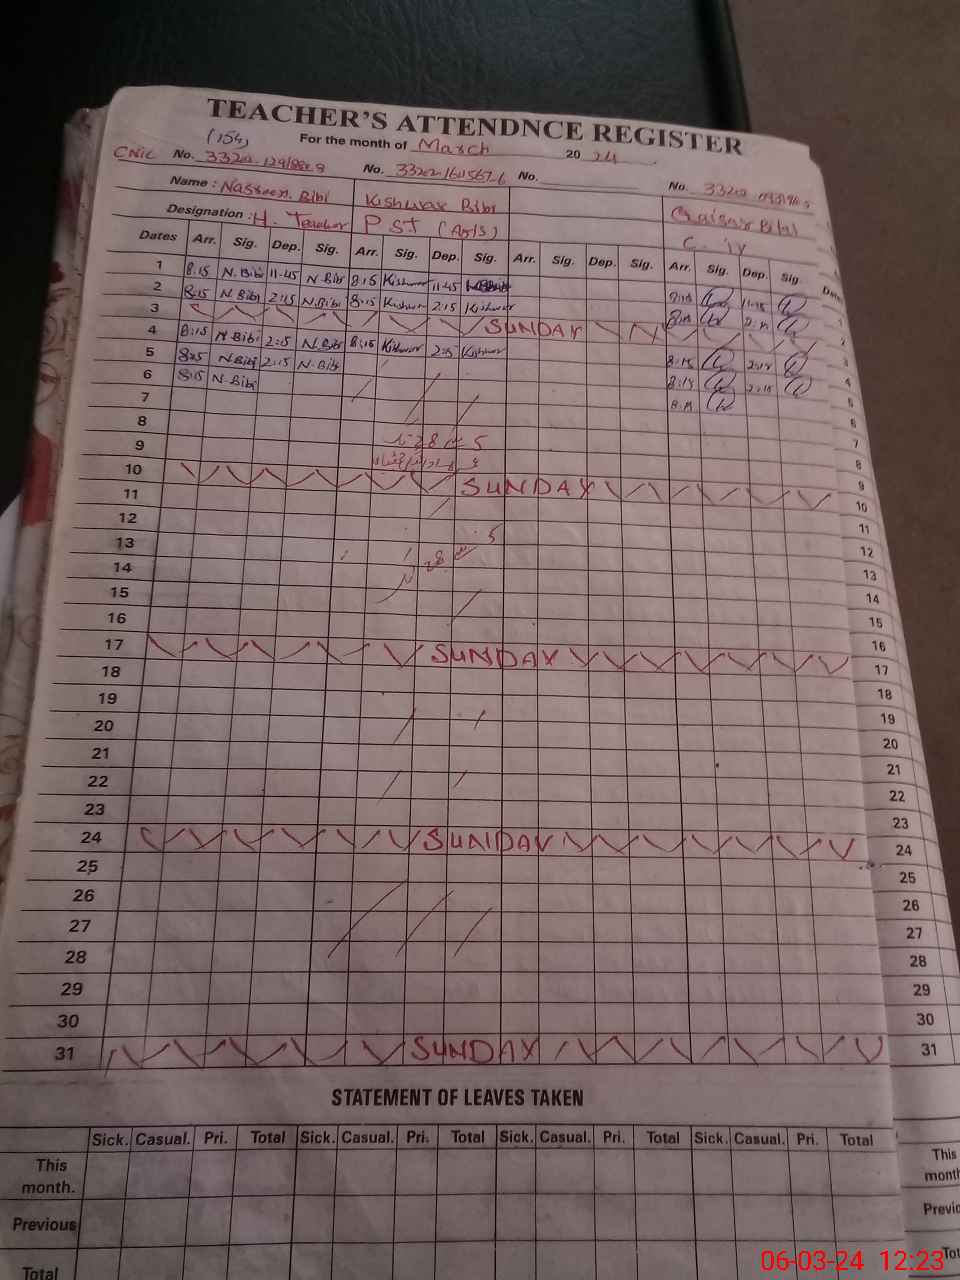 TEACHER'S ATTENDNCE REGISTER
(154) For the month of March 20 24
CNIC No. No. No. No.
Name : Nasreen Bibi Kishwar Bibi Qaisar Bilal
Designation : H. Teacher PST C. IV
Dates Arr. Sig. Dep. Sig. Arr. Sig. Dep. Sig. Arr. Sig. Dep. Sig. Arr. Sig. Dep. Sig.
1 8:15 N.Bibi 11:45 N.Bibi 8:15 Kishwar 11:45 8:15 11:45
2 8:15 N.Bibi 2:15 N.Bibi 8:15 Kishwar 2:15 Kishwar 8:15 2:15 1
3 SUNDAY 2
4 8:15 N.Bibi 2:15 N.Bibi 8:15 Kishwar 2:15 Kishwar 8:15 2:15 3
5 8:15 N.Bibi 2:15 N.Bibi 8:15 2:15 4
6 8:15 N.Bibi 8:15 5
7 6
8 7
9 28 5 8
10 SUNDAY 9
11 10
12 11
13 28 5 12
14 13
15 14
16 15
17 SUNDAY 16
18 17
19 18
20 19
21 20
22 21
23 22
24 SUNDAY 23
25 24
26 25
27 26
28 27
29 28
30 29
31 SUNDAY 30
31
STATEMENT OF LEAVES TAKEN
Sick. Casual. Pri. Total Sick. Casual. Pri. Total Sick. Casual. Pri. Total Sick. Casual. Pri. Total
This month. This
Previous
Total
06-03-24 12:23